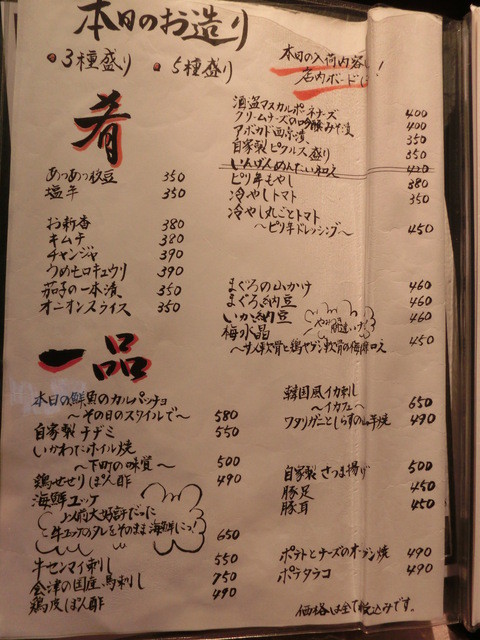 本日のお造り
・3種盛り ・5種盛り
本日の入荷内容は
店内ボードに!
肴
あつあつ枝豆 350
塩辛 350
お新香 380
キムチ 380
チャンジャ 390
うめモロキュウリ 390
茄子の一本漬 350
オニオンスライス 350
酒盗マスカルポーネチーズ 400
クリームチーズの味噌漬 400
アボカド 350
自家製ピクルス盛り 350
いんげんめんたい和え 420
ピリ辛もやし 380
冷やしトマト 350
冷やし丸ごとトマト
〜ピリ辛ドレッシング〜 450
まぐろの山かけ 460
まぐろ納豆 460
いか納豆 460
梅水晶 450
〜サメ軟骨と鶏ヤゲン軟骨の梅肉和え
一品
本日の鮮魚のカルパッチョ
〜その日のスタイルで〜 580
自家製チヂミ 550
いかわたホイル焼
〜下町の味覚〜 500
鶏せせりぽん酢 490
海鮮ユッケ
以前大好評だった
牛ユッケのタレをそのまま海鮮に! 650
牛センマイ刺し 550
会津の国産馬刺し 750
鶏皮ぽん酢 490
韓国風イカ刺し
〜イカフェ〜 650
ワタリガニとしらすの山芋焼 490
自家製さつま揚げ 500
豚足 450
豚耳 450
ポテトとチーズのオーブン焼 490
ポテタラコ 490
価格は全て税込みです。